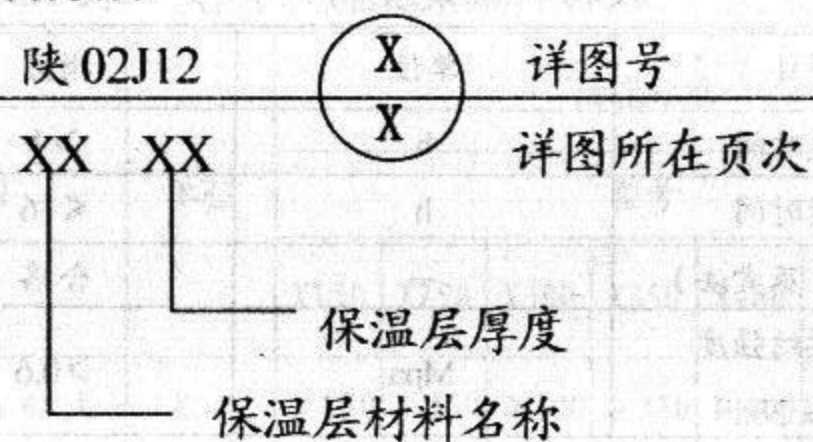 陕 02J12 X 详图号
XX XX X 详图所在页次
保温层厚度
保温层材料名称